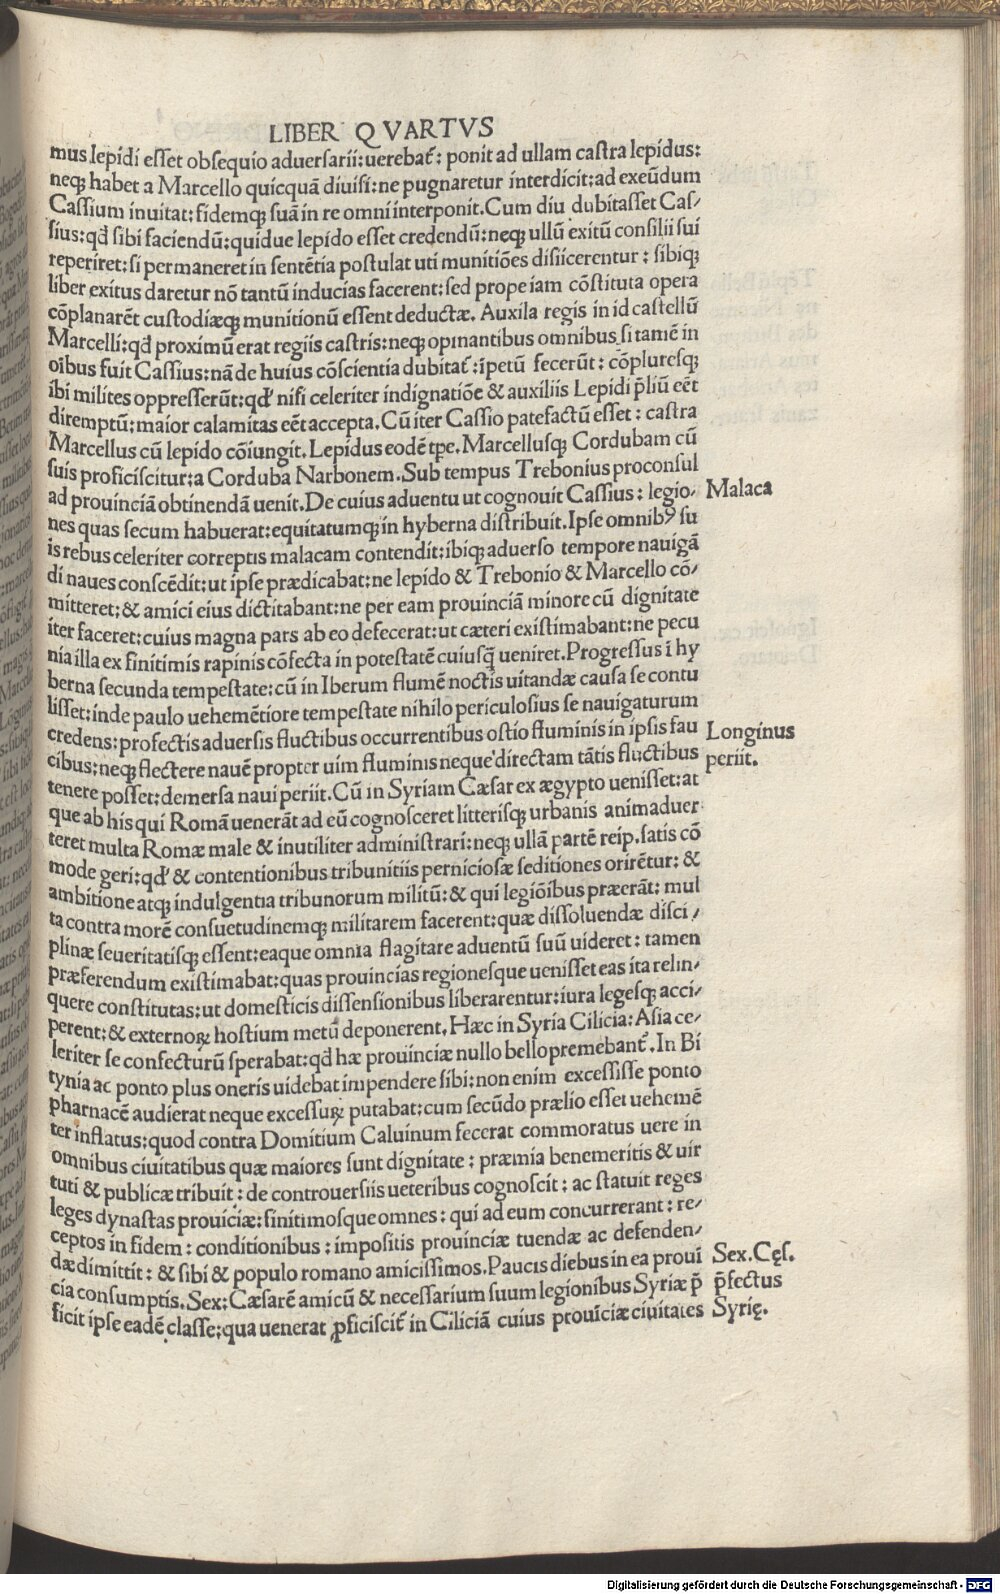 LIBER QVARTVS
mus lepidi eſſet obſequio aduerſarii: uerebat̃: ponit ad ullam caſtra lepidus:
neqꝫ habet a Marcello quicquã diuiſi: ne pugnaretur interdicit: ad exeũdum
Caſſium inuitat: fidemqꝫ ſuã in re omni interponit. Cum diu dubitaſſet Caſ/
ſius: qđ ſibi faciendũ: quidue lepido eſſet credendũ: neqꝫ ullũ exitũ conſilii ſui
reperiret: ſi permaneret in ſentẽtia poſtulat uti munitiões diſiicerentur: ſibiqꝫ
liber exitus daretur nõ tantũ inducias facerent: ſed prope iam cõſtituta opera
cõplanarẽt cuſtodiæqꝫ munitionũ eſſent deductæ. Auxila regis in id caſtellũ
Marcelli: qđ proximũ erat regiis caſtris: neqꝫ opinantibus omnibus ſi tamẽ in
oĩbus fuit Caſſius: nã de huius cõſcientia dubitat̃: ĩpetũ fecerũt: cõpluresqꝫ
ibi milites oppreſſerũt: qđ niſi celeriter indignatiõe & auxiliis Lepidi p̃liũ eẽt
diremptũ: maior calamitas eẽt accepta. Cũ iter Caſſio patefactũ eſſet: caſtra
Marcellus cũ lepido cõiungit. Lepidus eodẽ tpe. Marcelluſqꝫ Cordubam cũ
ſuis proficiſcitur: a Corduba Narbonem. Sub tempus Trebonius proconſul
ad prouinciã obtinendã uenit. De cuius aduentu ut cognouit Caſſius: legio/
nes quas ſecum habuerat: equitatumqꝫ in hyberna diſtribuit. Ipſe omnibꝰ ſu
is rebus celeriter correptis malacam contendit: ibiqꝫ aduerſo tempore nauigã
di naues conſcẽdit: ut ipſe prædicabat: ne lepido & Trebonio & Marcello cõ/
mitteret: & amici eius dictitabant: ne per eam prouinciã minore cũ dignitate
iter faceret: cuius magna pars ab eo defecerat: ut cæteri exiſtimabant: ne pecu
nia illa ex finitimis rapinis cõfecta in poteſtatẽ cuiuſq̃ ueniret. Progreſſus ĩ hy
berna ſecunda tempeſtate: cũ in Iberum flumẽ noctis uitandæ cauſa ſe contu
liſſet: inde paulo uehemẽtiore tempeſtate nihilo periculoſius ſe nauigaturum
credens: profectis aduerſis fluctibus occurrentibus oſtio fluminis in ipſis fau
cibus: neqꝫ flectere nauẽ propter uim fluminis neque directam tãtis fluctibus
tenere poſſet: demerſa naui periit. Cũ in Syriam Cæſar ex ægypto ueniſſet: at
que ab his qui Romã uenerãt ad eũ cognoſceret litteriſqꝫ urbanis animaduer
teret multa Romæ male & inutiliter adminiſtrari: neqꝫ ullã partẽ reip. ſatis cõ
mode geri: qđ & contentionibus tribunitiis pernicioſæ ſeditiones orirẽtur: &
ambitione atqꝫ indulgentia tribunorum militũ: & qui legiõibus præerãt: mul
ta contra morẽ conſuetudinemqꝫ militarem facerent: quæ diſſoluendæ diſci/
plinæ ſeueritatiſqꝫ eſſent: eaque omnia flagitare aduentũ ſuũ uideret: tamen
præferendum exiſtimabat: quas prouincias regioneſque ueniſſet eas ita relin/
quere conſtitutas: ut domeſticis diſſenſionibus liberarentur: iura legeſqꝫ acci/
perent: & externoꝝ hoſtium metũ deponerent. Hæc in Syria Cilicia: Aſia ce/
leriter ſe confecturũ ſperabat: qđ hæ prouinciæ nullo bello premebant̃. In Bi
tynia ac ponto plus oneris uidebat impendere ſibi: non enim exceſſiſſe ponto
pharnacẽ audierat neque exceſſuꝝ putabat: cum ſecũdo prælio eſſet uehemẽ
ter inflatus: quod contra Domitium Caluinum fecerat commoratus uere in
omnibus ciuitatibus quæ maiores ſunt dignitate: præmia benemeritis & uir
tuti & publicæ tribuit: de controuerſiis ueteribus cognoſcit: ac ſtatuit reges
leges dynaſtas prouiciæ: finitimoſque omnes: qui ad eum concurrerant: re/
ceptos in fidem: conditionibus: impoſitis prouinciæ tuendæ ac defenden/
dæ dimittit: & ſibi & populo romano amiciſſimos. Paucis diebus in ea proui
cia conſumptis. Sex: Cæſarẽ amicũ & neceſſarium ſuum legionibus Syriæ p̃
ficit ipſe eadẽ claſſe: qua uenerat ꝓficiſcit̃ in Ciliciã cuius prouĩciæ ciuitates
Malaca
Longinus
periit.
Sex. Cęſ.
p̃fectus
Syrię.
Digitalisierung gefördert durch die Deutsche Forschungsgemeinschaft - DFG